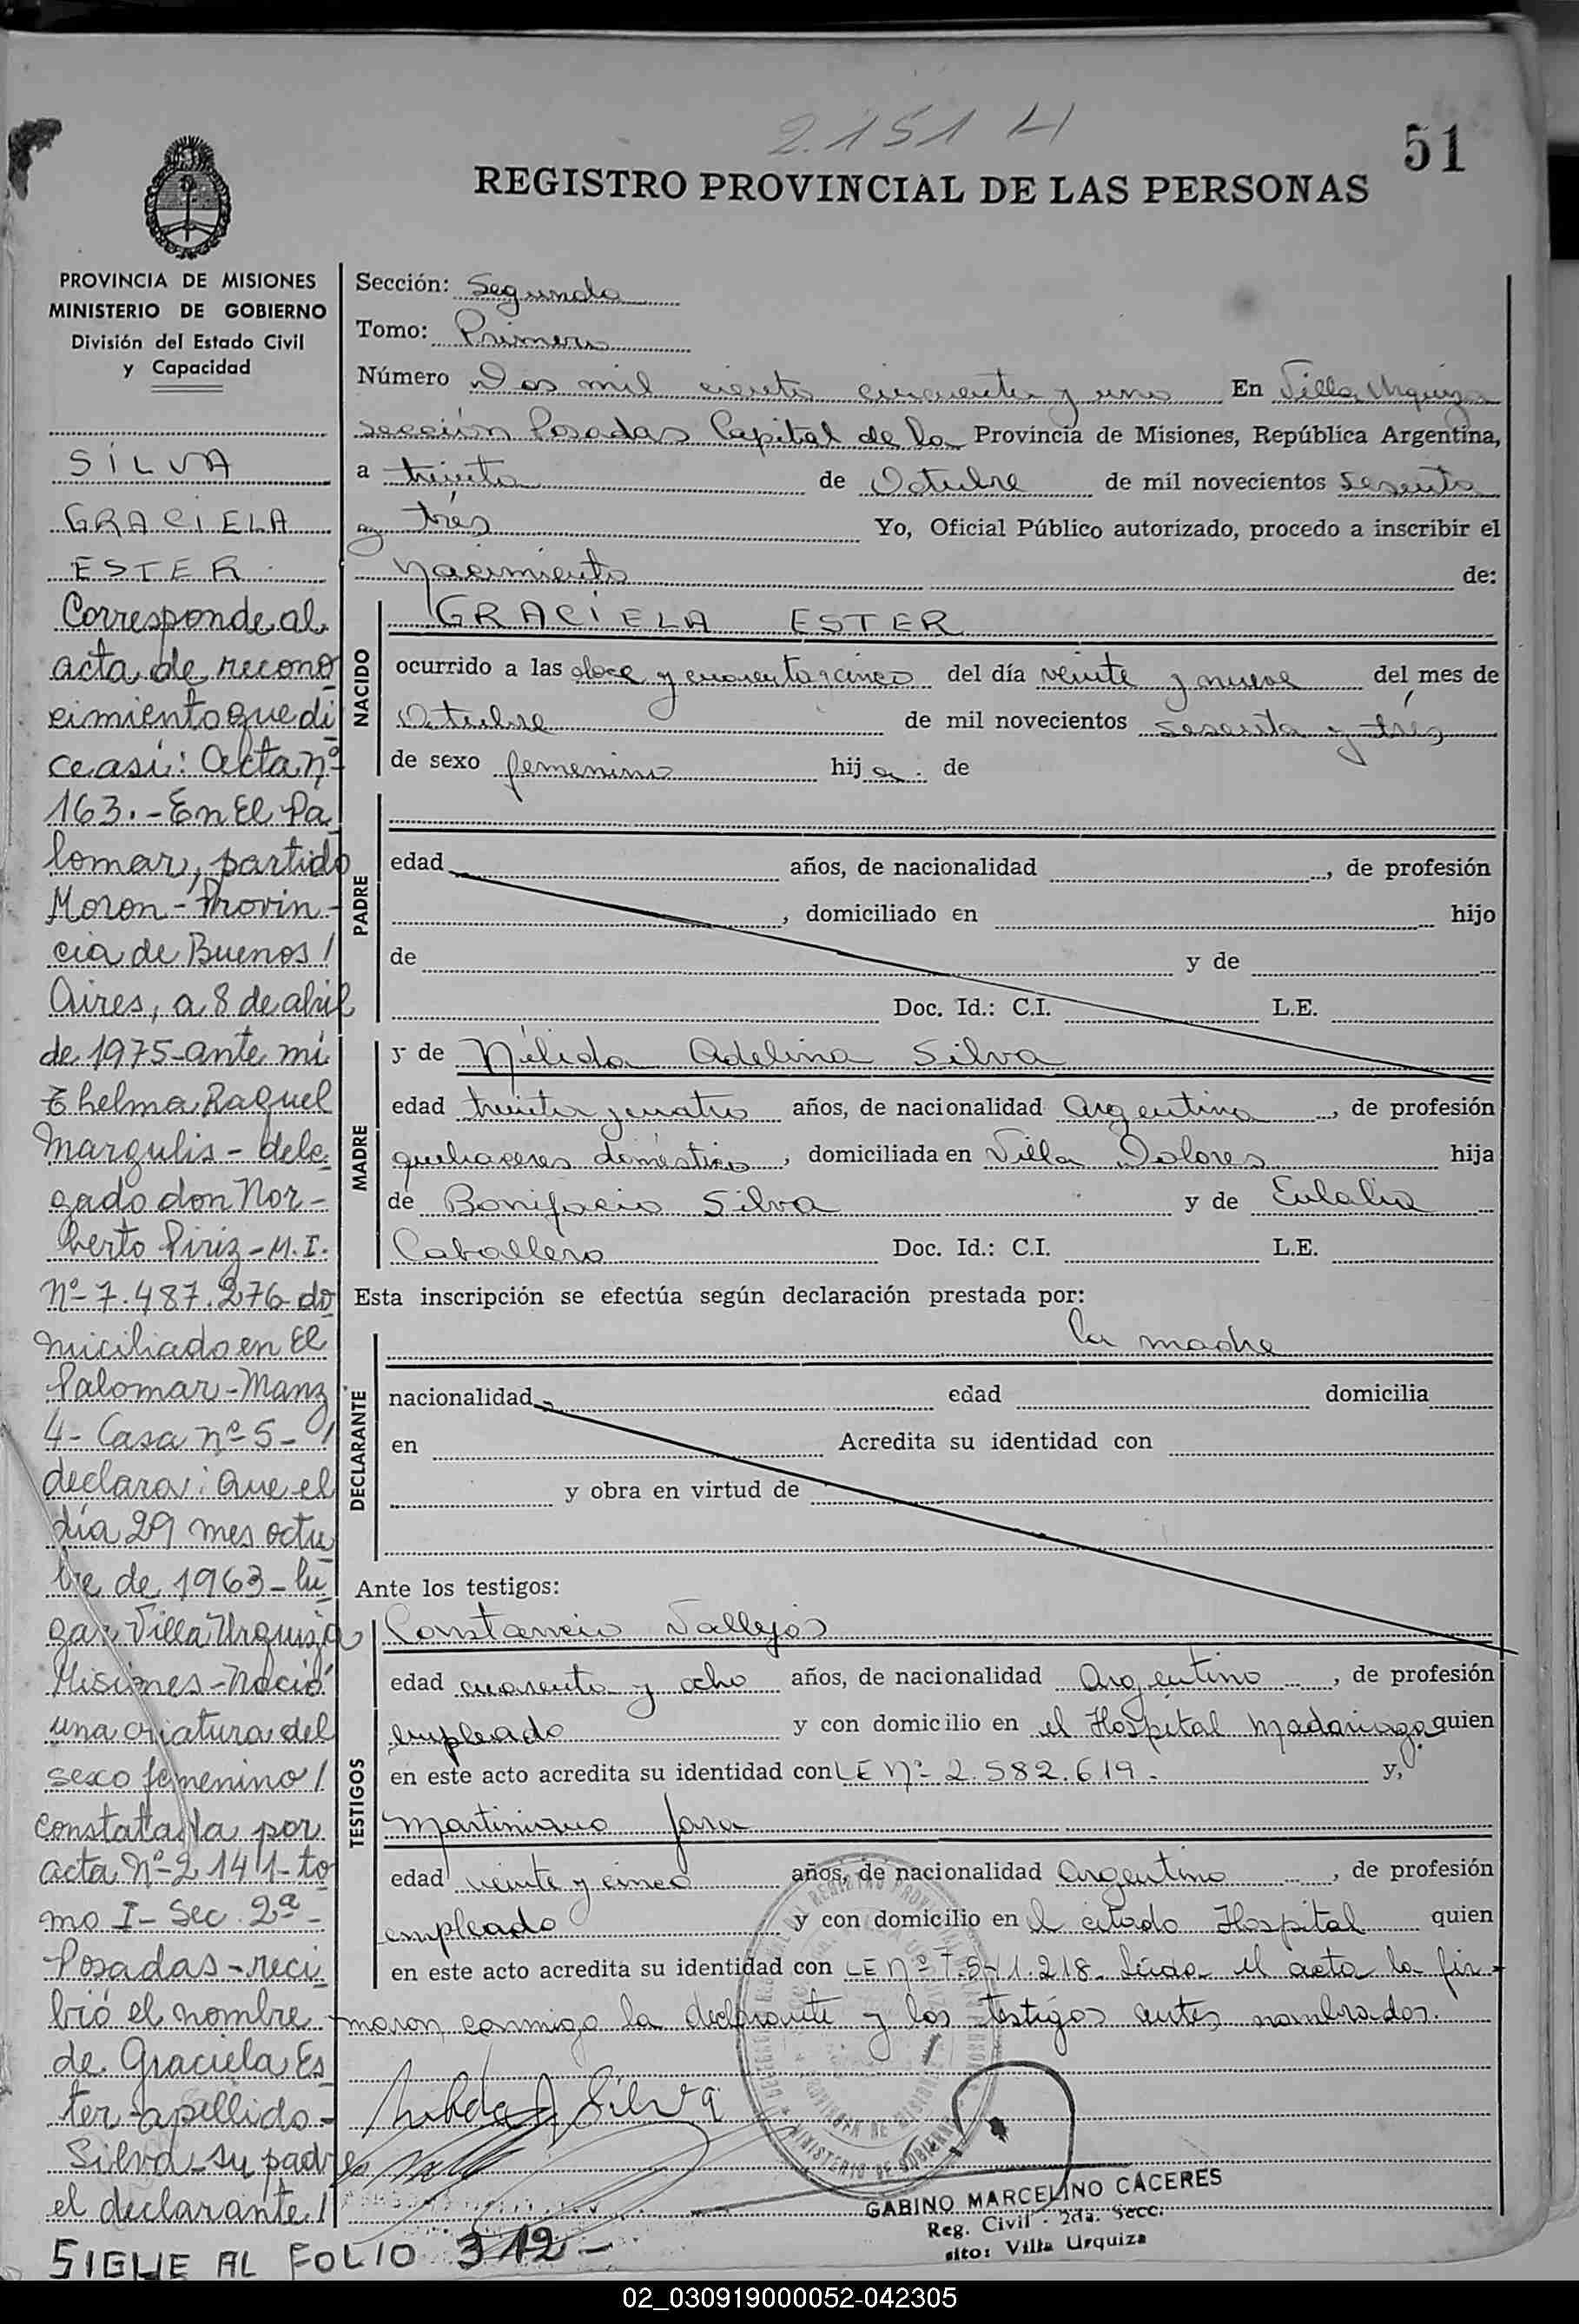 2.151 H
51
REGISTRO PROVINCIAL DE LAS PERSONAS
PROVINCIA DE MISIONES
MINISTERIO DE GOBIERNO
División del Estado Civil
y Capacidad
SILVA
GRACIELA
ESTER
Corresponde al
acta de recono
cimiento que di
ce asi: Acta nº
163.- En El Pa
lomar, partido
Moron - Provin-
cia de Buenos /
Aires, a 8 de abril
de 1975 - ante mi
Thelma Raquel
Margulis - dele
gado don Nor-
berto Piriz - M.I.
Nº 7.487.276 do
miciliado en El
Palomar - Manz
4 - Casa nº 5 - /
declara: Que el
día 29 mes octu
bre de 1963 - lu
gar Villa Urquiza
Misiones - Nació
una criatura del
sexo femenino /
constatada por
acta Nº 2141 - to
mo I - Sec. 2ª -
Posadas - reci
bió el nombre
de Graciela Es
ter - apellido -
Silva - su padre
el declarante /
SIGUE AL FOLIO 312 -
Sección: Segunda
Tomo: Primero
Número Dos mil ciento cincuenta y uno En Villa Urquiza
sección Posadas Capital de la Provincia de Misiones, República Argentina,
a treinta de Octubre de mil novecientos sesenta
y trés Yo, Oficial Público autorizado, procedo a inscribir el
nacimiento de:
NACIDO
GRACIELA ESTER
ocurrido a las doce y cuarenta y cinco del día veinte y nueve del mes de
Octubre de mil novecientos sesenta y trés
de sexo femenino hija de
PADRE
edad años, de nacionalidad , de profesión
, domiciliado en hijo
de y de
Doc. Id.: C.I. L.E.
MADRE
y de Nélida Adelina Silva
edad treinta y cuatro años, de nacionalidad Argentina , de profesión
quehaceres domésticos , domiciliada en Villa Dolores hija
de Bonifacio Silva y de Eulalia
Caballero Doc. Id.: C.I. L.E.
Esta inscripción se efectúa según declaración prestada por:
DECLARANTE
la madre
nacionalidad edad domicilia
en Acredita su identidad con
y obra en virtud de
Ante los testigos:
TESTIGOS
Constancio Vallejos
edad cuarenta y ocho años, de nacionalidad Argentino , de profesión
empleado y con domicilio en el Hospital Madariaga quien
en este acto acredita su identidad con LE Nº 2.582.619.- y,
Martiniano Jara
edad veinte y cinco años, de nacionalidad Argentino , de profesión
empleado y con domicilio en el citado Hospital quien
en este acto acredita su identidad con LE Nº 7.541.218. Leida el acta la fir-
maron conmigo la declarante y los testigos antes nombrados.
Nelida A Silva
MINISTERIO DE GOBIERNO
GABINO MARCELINO CACERES
Reg. Civil - 2da. Secc.
sito: Villa Urquiza
02_030919000052-042305